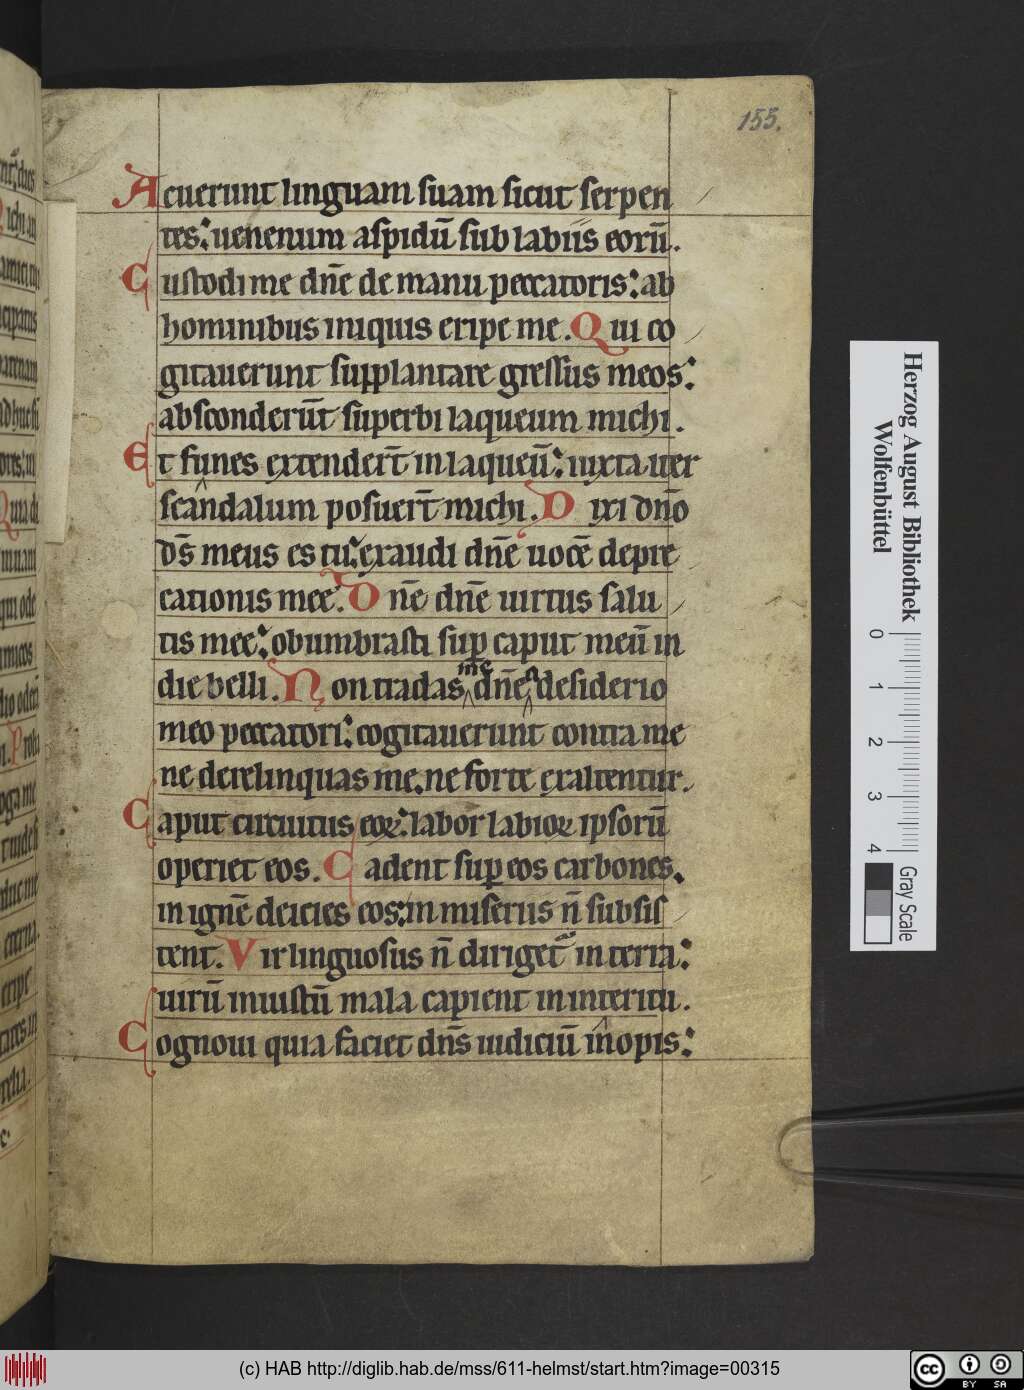 155.
Acuerunt linguam suam sicut serpen
tes: uenenum aspidū sub labiis eorū.
Custodi me dn̄e de manu peccatoris: ab
hominibus iniquis eripe me. Qui co
gitauerunt supplantare gressus meos:
absconderūt superbi laqueum michi.
Et funes extender̄t in laqueū: iuxta iter
scandalum posuer̄t michi. Dixi dn̄o
ds̄ meus es tu: exaudi dn̄e uocē depre
cationis mee. Dn̄e dn̄e uirtus salu
tis mee: obumbrasti sup̄ caput meū in
die belli. Non tradas me dn̄e a desiderio
meo peccatori: cogitauerunt contra me
ne derelinquas me, ne forte exaltentur.
Caput circuitus eoꝝ: labor labioꝝ ipsorū
operiet eos. Cadent sup̄ eos carbones,
in ignē deicies eos: in miseriis n̄ subsis
tent. Vir linguosus n̄ diriget᷑ in terra:
uirū iniustū mala capient in interitu.
Cognoui quia faciet dn̄s iudiciū inopis:
Herzog August Bibliothek
Wolfenbüttel
0 1 2 3 4
Gray Scale
(c) HAB http://diglib.hab.de/mss/611-helmst/start.htm?image=00315
cc BY SA